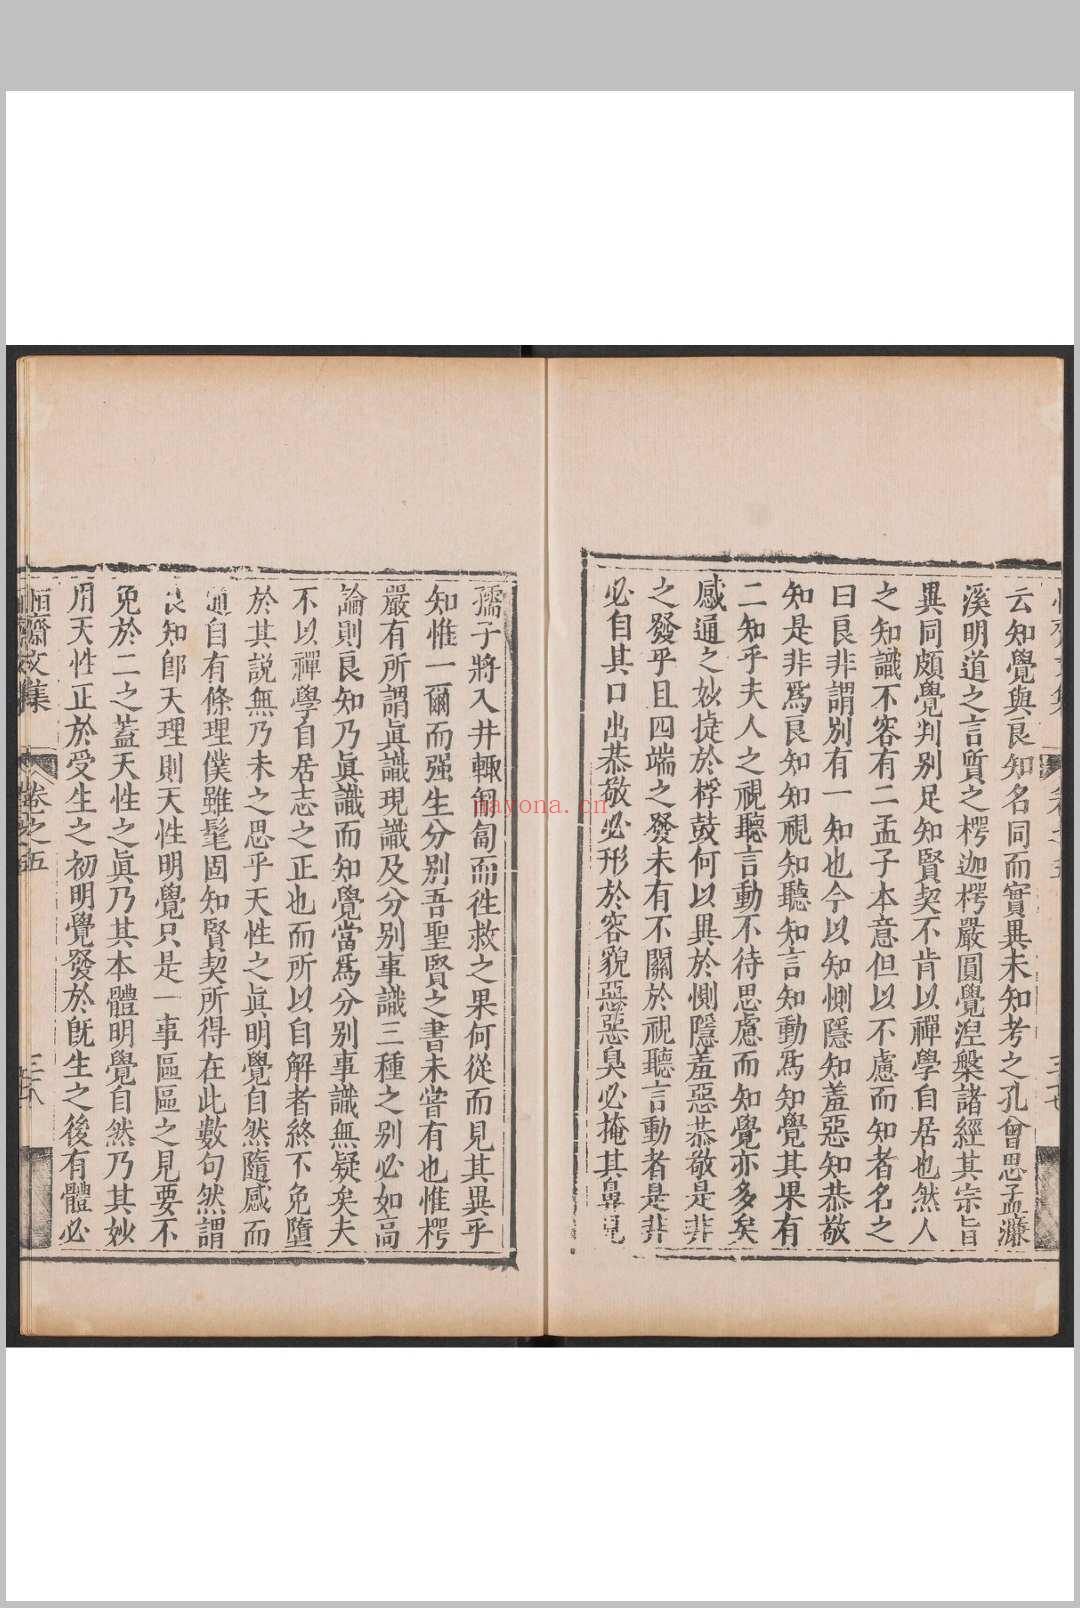 云知覺與良知名同而實異未知考之孔曾思孟濂
溪明道之言質之楞迦楞嚴圓覺涅槃諸經其宗旨
異同頗覺判别足知賢契不肯以禪學自居也然人
之知識不容有二孟子本意但以不慮而知者名之
曰良非謂别有一知也今以知惻隱知羞惡知恭敬
知是非爲良知知視知聽知言知動爲知覺其果有
二知乎夫人之視聽言動不待思慮而知覺亦多矣
感通之妙捷於桴鼓何以異於惻隱羞惡恭敬是非
之發乎且四端之發未有不關於視聽言動者是非
必自其口出恭敬必形於容貌惡惡臭必掩其鼻見
孺子將入井輙匍匐而徃救之果何從而見其異乎
知惟一爾而强生分别吾聖賢之書未嘗有也惟楞
嚴有所謂眞識現識及分别事識三種之别必如高
論則良知乃眞識而知覺當爲分别事識無疑矣夫
不以禪學自居志之正也而所以自解者終不免墮
於其説無乃未之思乎天性之眞明覺自然隨感而
通自有條理僕雖髦固知賢契所得在此數句然謂
良知即天理則天性明覺只是一事區區之見要不
免於二之蓋天性之眞乃其本體明覺自然乃其妙
用天性正於受生之初明覺發於旣生之後有體必
文集
卷之五
三八
nayona.cn